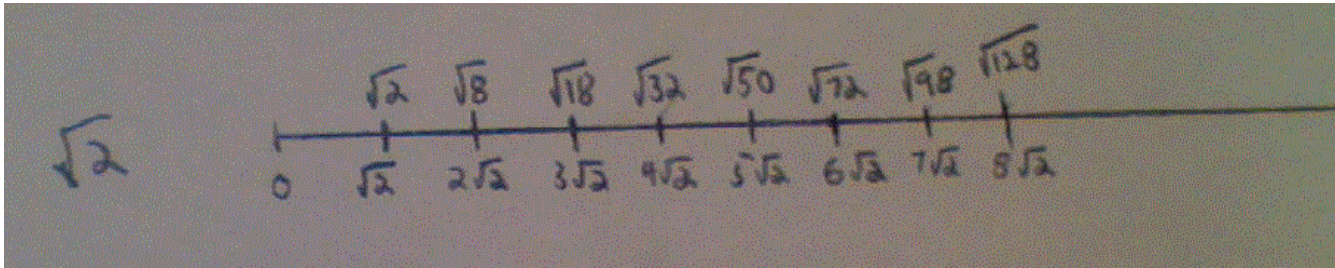 √2 √8 √18 √32 √50 √72 √98 √128
√2
0 √2 2√2 3√2 4√2 5√2 6√2 7√2 8√2